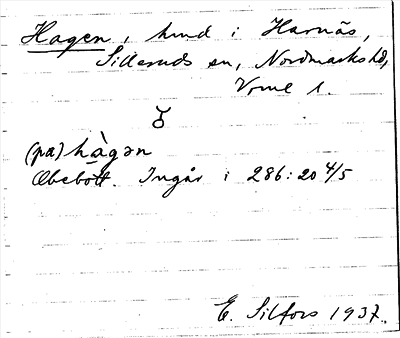 Hagen, hmd i Harnäs,
Silleruds sn, Nordmarks hd,
Vrml l.
(pa) hàgən
Obebott. Ingår i 286:20 4/5
E. Silfors 1937.